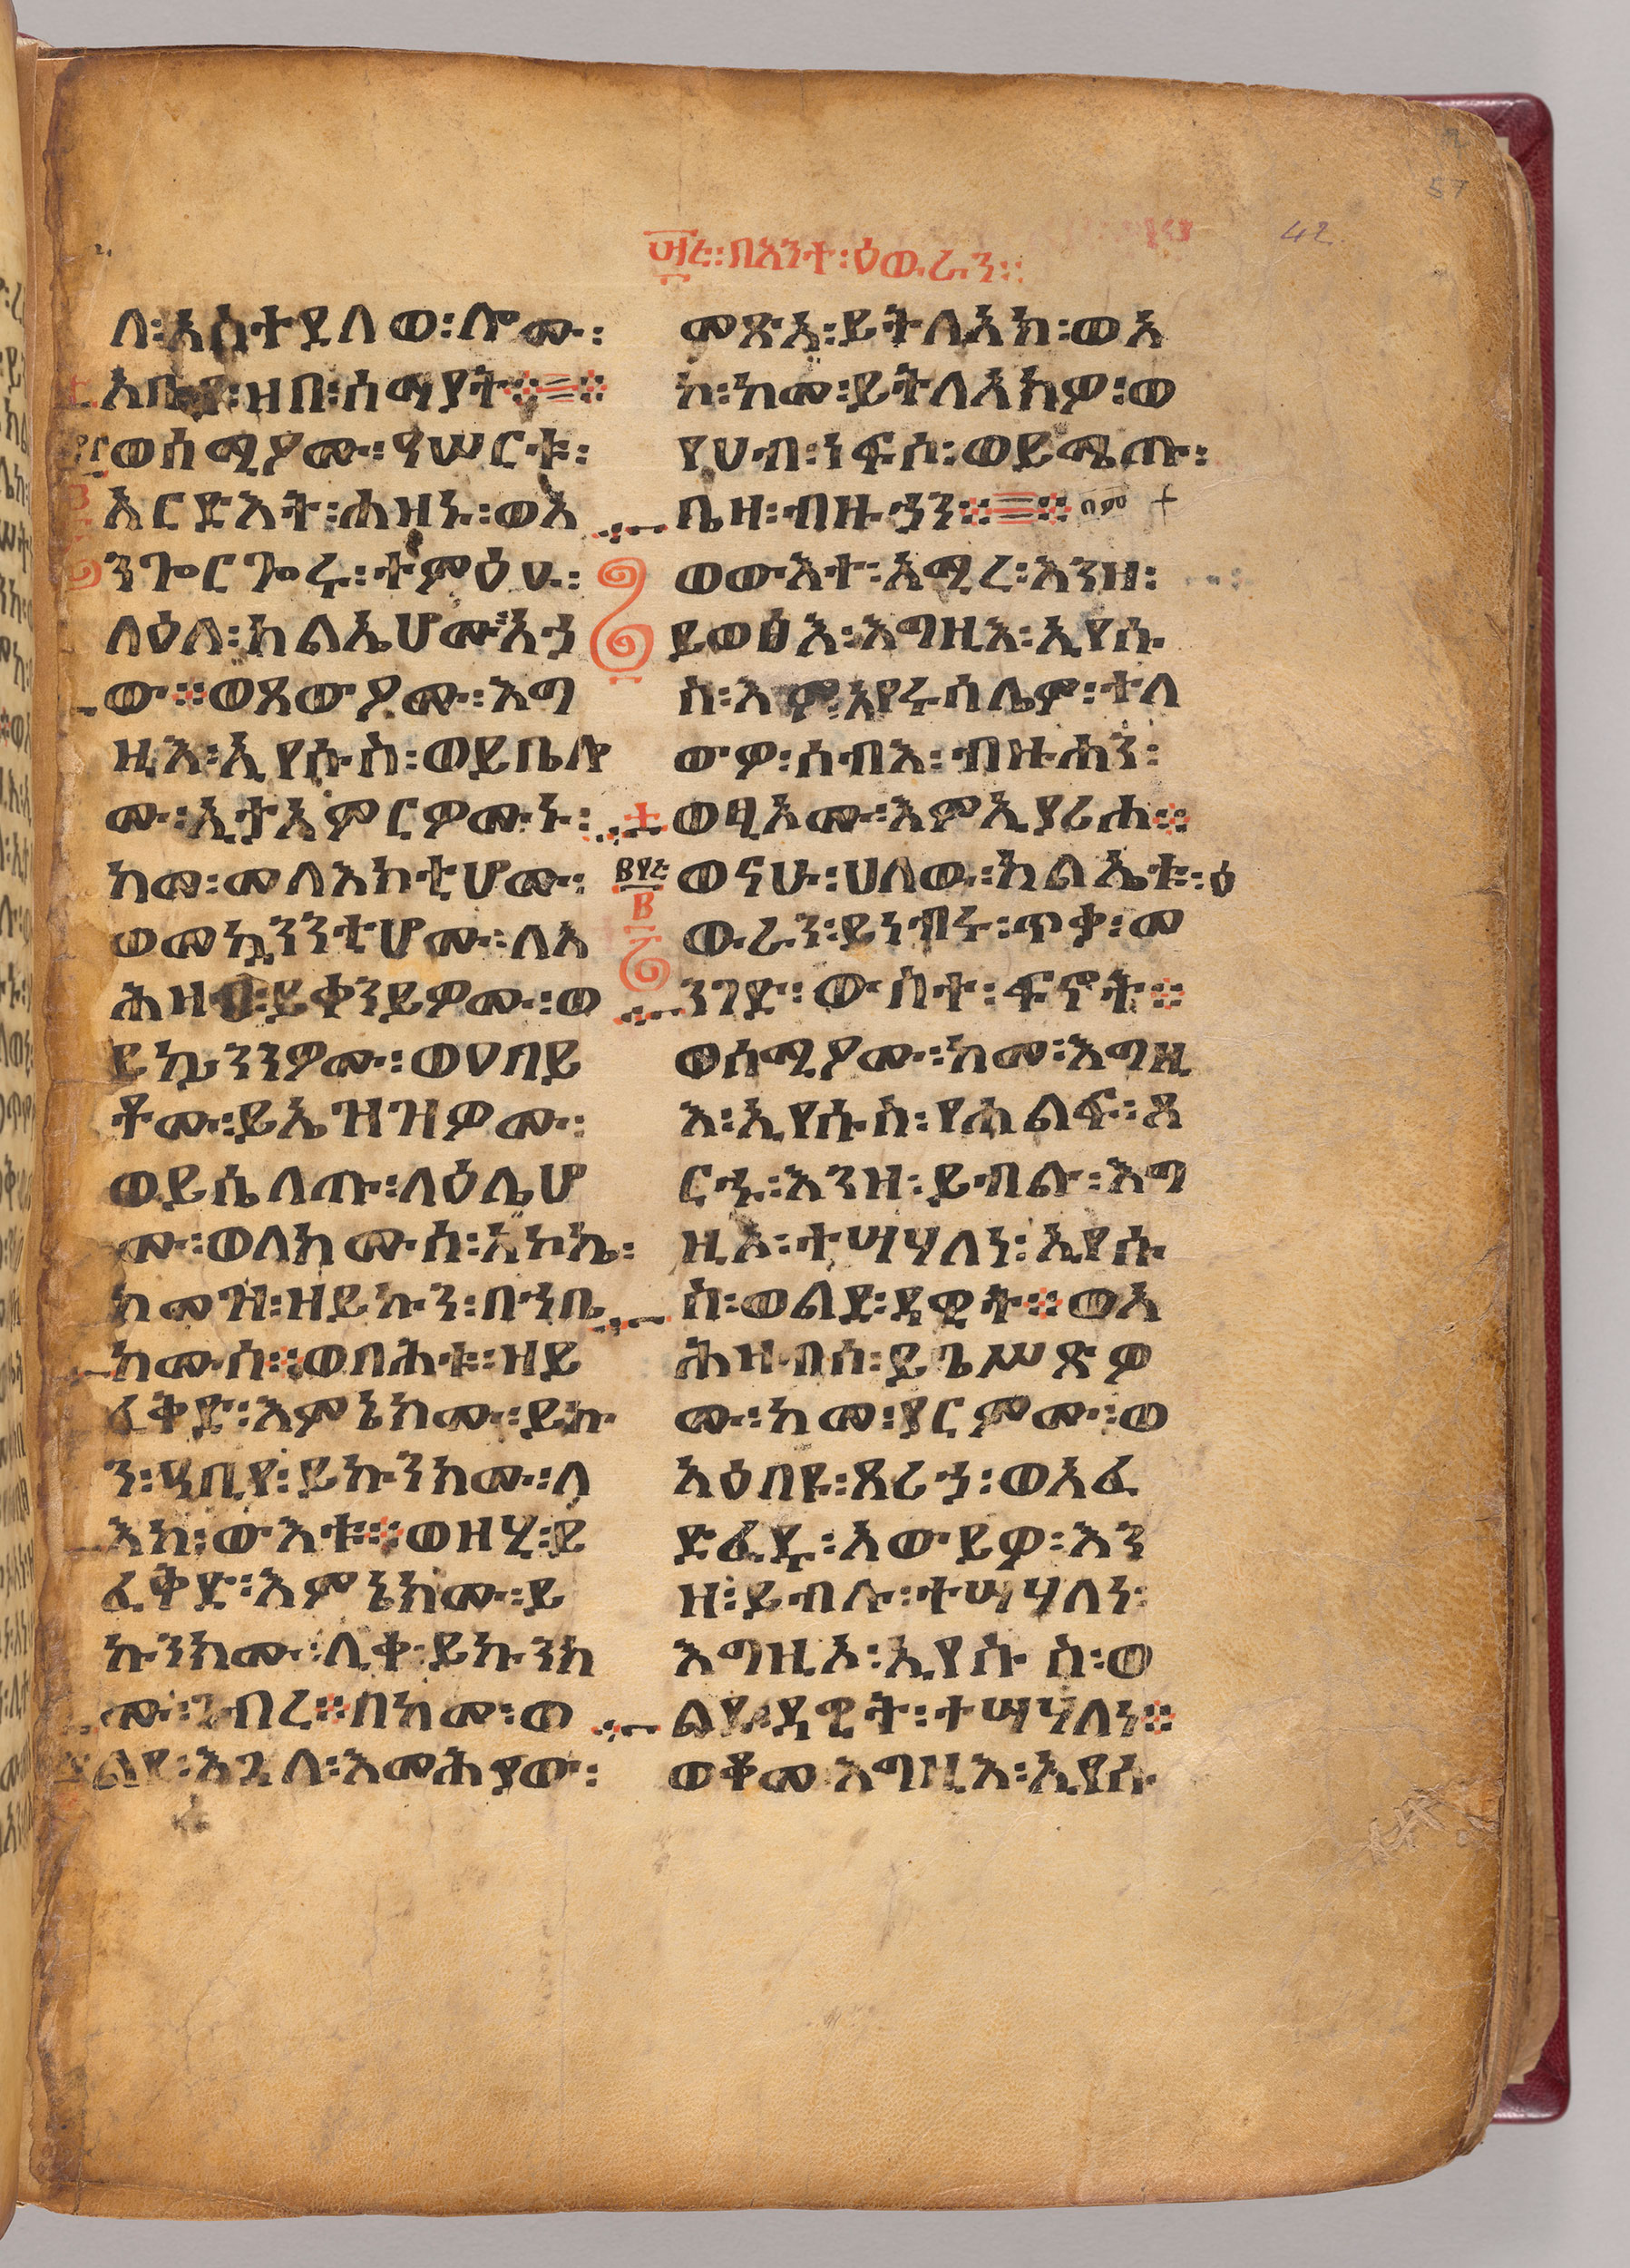 በእንተ፡ዕውራን፡፡
42
57
ለ፡እስተደለወ፡ሎሙ፡
አቡየ፡ዘበ፡ሰማያት፨
ወሰሚዖሙ፡ዓሠርቱ፡
አርድእት፡ሐዘኑ፡ወአ
ንጐርጐሩ፡ተምዕዑ፡
ላዕለ፡ክልኤሆሙ፡አኃ
ው፨ወጸውዖሙ፡እግ
ዚእ፡ኢየሱስ፡ወይቤሎ
ሙ፡ኢታአምርዎሙኑ፡
ከመ፡መላእክቲሆሙ፡
ወመኳንንቲሆሙ፡ለአ
ሕዛብ፡ይቀንይዎሙ፡ወ
ይኴንንዎሙ፡ወዐበይ
ቶሙ፡ይኤዝዝዎሙ፡
ወይሴለጡ፡ላዕሌሆ
ሙ፡ወለክሙሰ፡አኮኬ፡
ከመዝ፡ዘይኩን፡በኀቤ
ክሙሰ፨ወባሕቱ፡ዘይ
ፈቅድ፡እምኔክሙ፡ይኩ
ን፡ዓቢየ፡ይኩንክሙ፡ላ
እከ፡ውእቱ፨ወዘሂ፡ይ
ፈቅድ፡እምኔክሙ፡ይ
ኩንክሙ፡ሊቀ፡ይኩንክ
ሙ፡ገብረ፨በከመ፡ወ
ልደ፡እጓለ፡እመሕያው፡
መጽአ፡ይትለአክ፡ወአ
ኮ፡ከመ፡ይትለአክዎ፡ወ
የሀብ፡ነፍሶ፡ወይጼጡ፡
ቤዛ፡ብዙኃን፨
ወውእተ፡አሚረ፡እንዘ፡
ይወፅእ፡እግዚእ፡ኢየሱ
ስ፡እምኢየሩሳሌም፡ተለ
ውዎ፡ሰብእ፡ብዙሐን፡
ወፂኦሙ፡እምኢያሪሖ፨
ወናሁ፡ሀለዉ፡ክልኤቱ፡ዕ
ውራን፡ይነብሩ፡ጥቃ፡መ
ንገድ፡ውስተ፡ፍኖት፨
ወሰሚዖሙ፡ከመ፡እግዚ
እ፡ኢየሱስ፡የሐልፍ፡ጸ
ርኁ፡እንዘ፡ይብሉ፡እግ
ዚኦ፡ተሣሃለነ፡ኢየሱ
ስ፡ወልደ፡ዳዊት፨ወአ
ሕዛብሰ፡ይጌሥጽዎ
ሙ፡ከመ፡ያርምሙ፡ወ
አዕበዩ፡ጸሪኃ፡ወአፈ
ድፈዱ፡አውይዎ፡እን
ዘ፡ይብሉ፡ተሣሃለነ፡
እግዚኦ፡ኢየሱስ፡ወ
ልደ፡ዳዊት፡ተሣሃለነ፨
ወቆመ፡እግዚእ፡ኢየሱ